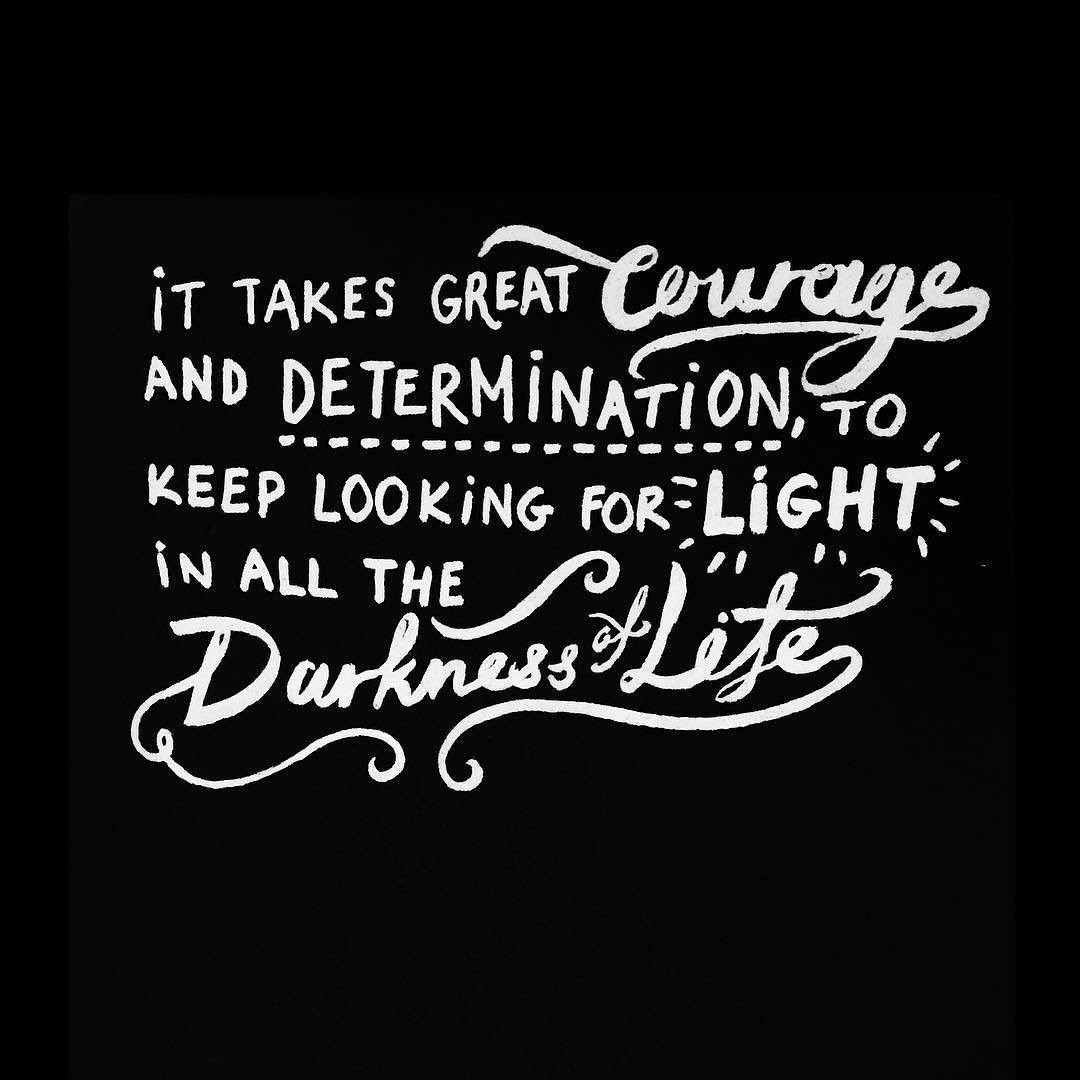 iT TAKES GREAT Courage
AND DETERMiNATiON, TO
KEEP LOOKiNG FOR LiGHT
iN ALL THE
Darkness of Life